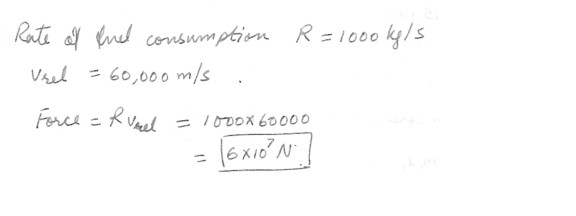 Rate of fuel consumption R = 1000 kg/s
Vrel = 60,000 m/s .
Force = R Vrel = 1000 x 60000
= 6 x 10⁷ N